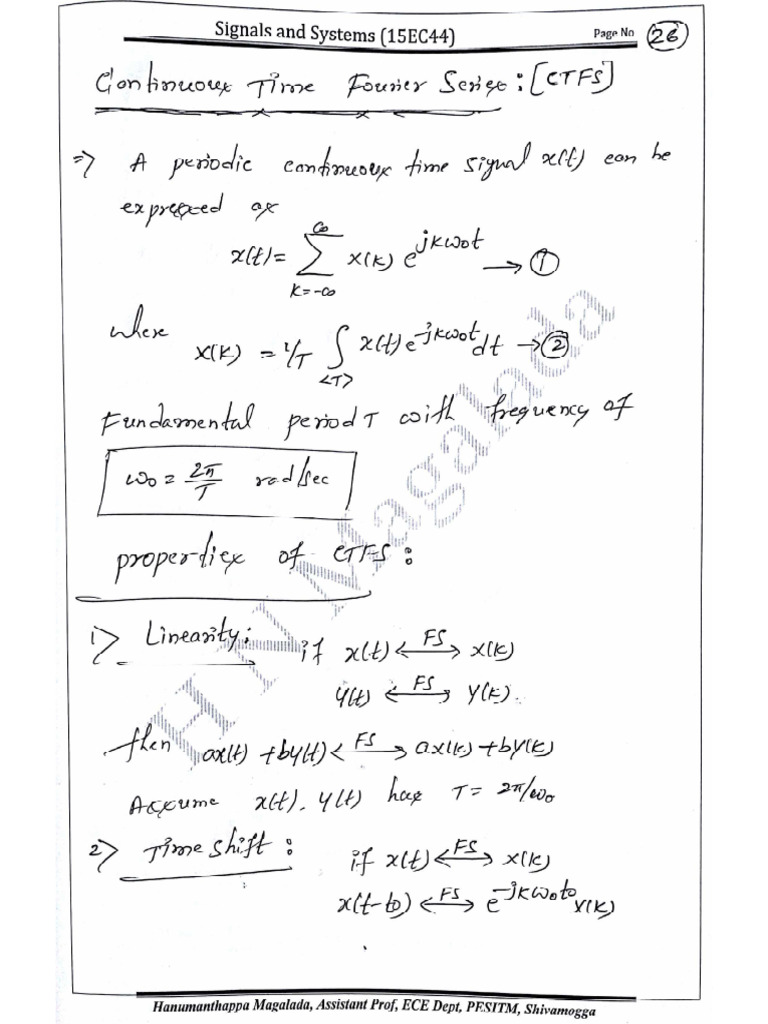 Signals and Systems (15EC44)
Page No 26
Continuous Time Fourier Series: [CTFS]
=> A periodic continuous time signal x(t) can be
expressed as
x(t) = ∑_{K=-∞}^{∞} X(K) e^{jKω₀t} → ①
where
X(K) = 1/T ∫_{<T>} x(t) e^{-jKω₀t} dt → ②
Fundamental period T with frequency of
ω₀ = 2π/T rad/sec
properties of CTFS:
1> Linearity: if x(t) <-FS-> X(K)
y(t) <-FS-> Y(K).
then ax(t) + by(t) <-FS-> aX(K) + bY(K)
Assume x(t), y(t) has T = 2π/ω₀
2> Time shift: if x(t) <-FS-> X(K)
x(t-t₀) <-FS-> e^{-jKω₀t₀} X(K)
HN Magalada
Hanumanthappa Magalada, Assistant Prof, ECE Dept, PESITM, Shivamogga